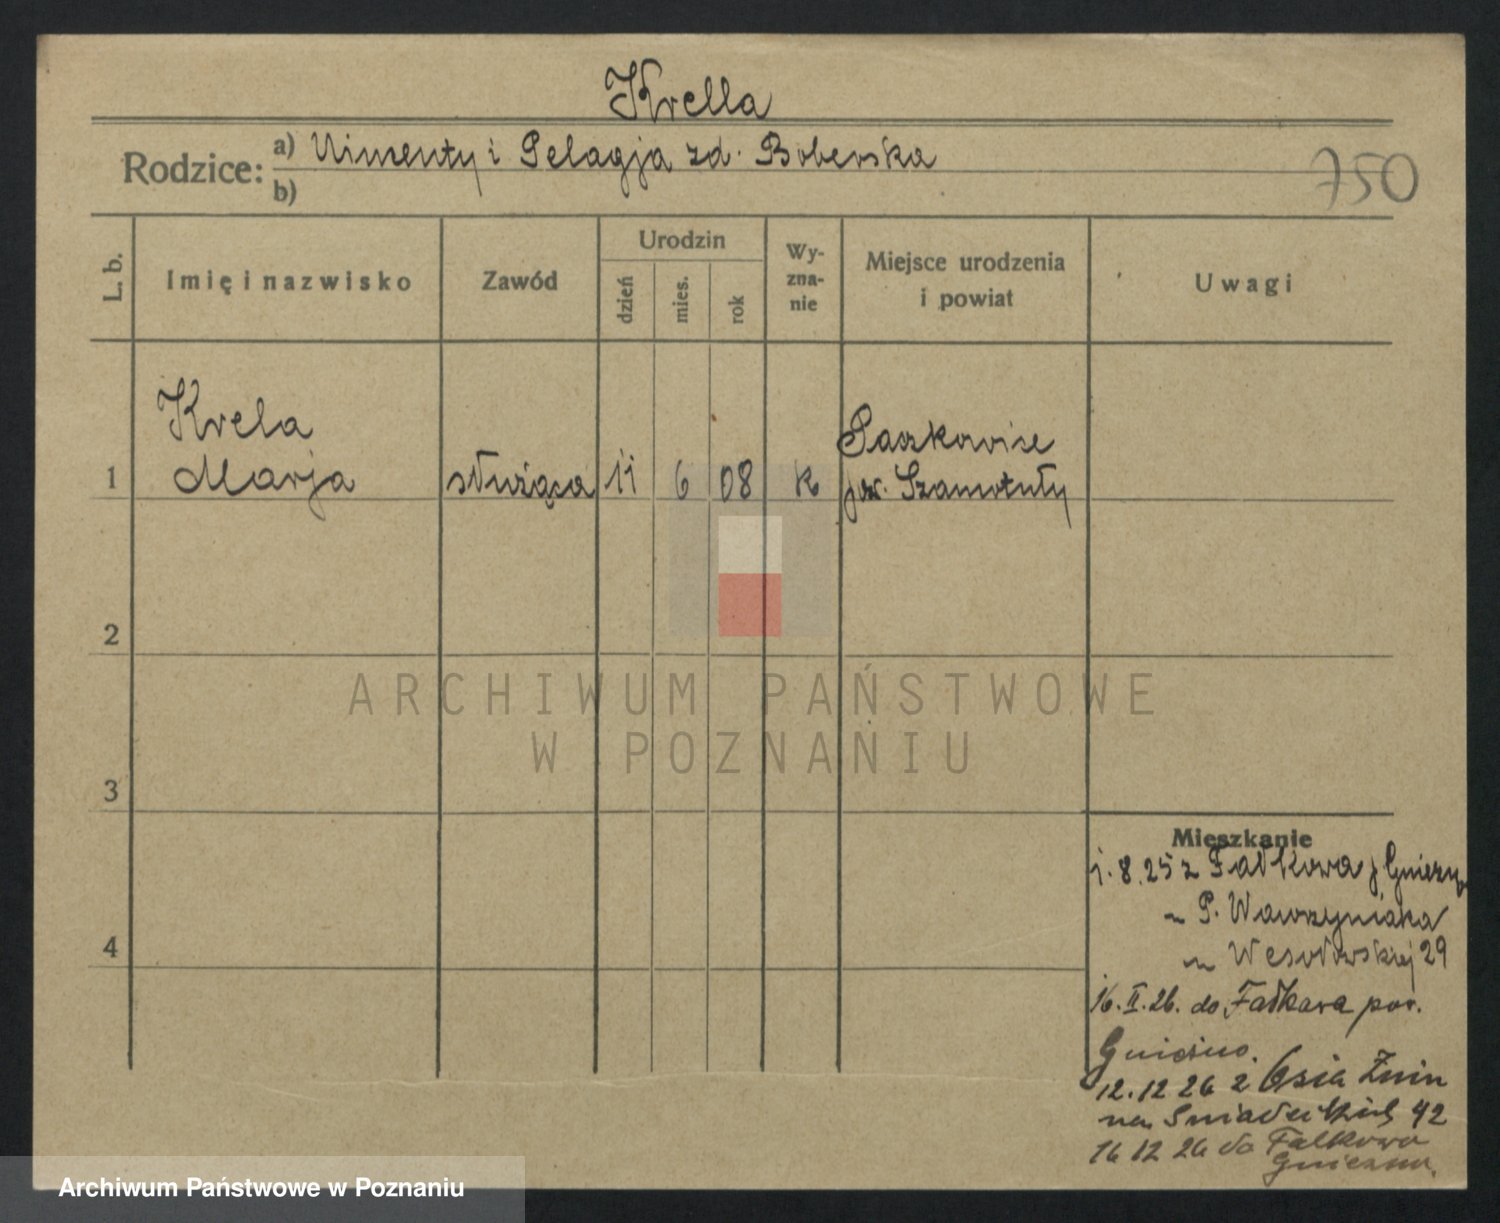 Krella
Rodzice: a) i Pelagja zd. Boberska
b)
750
L. b.
Imię i nazwisko
Zawód
Urodzin
dzień
mies.
rok
Wy-
zna-
nie
Miejsce urodzenia
i powiat
Uwagi
Krela
1 Marja
służąca
11
6
08
k
pow. Szamotuły
2
3
4
Mieszkanie
1.8.25 z Fałkowa p
P. Wawrzyniaka
Wesołowskiej 29
16.II.26. do Fałkowa pow.
Gniezno.
12.12 26 z Żnin
na Śniadeckich 42
16 12 26 do Falkowo
Gniezno.
ARCHIWUM PAŃSTWOWE
W POZNANIU
Archiwum Państwowe w Poznaniu